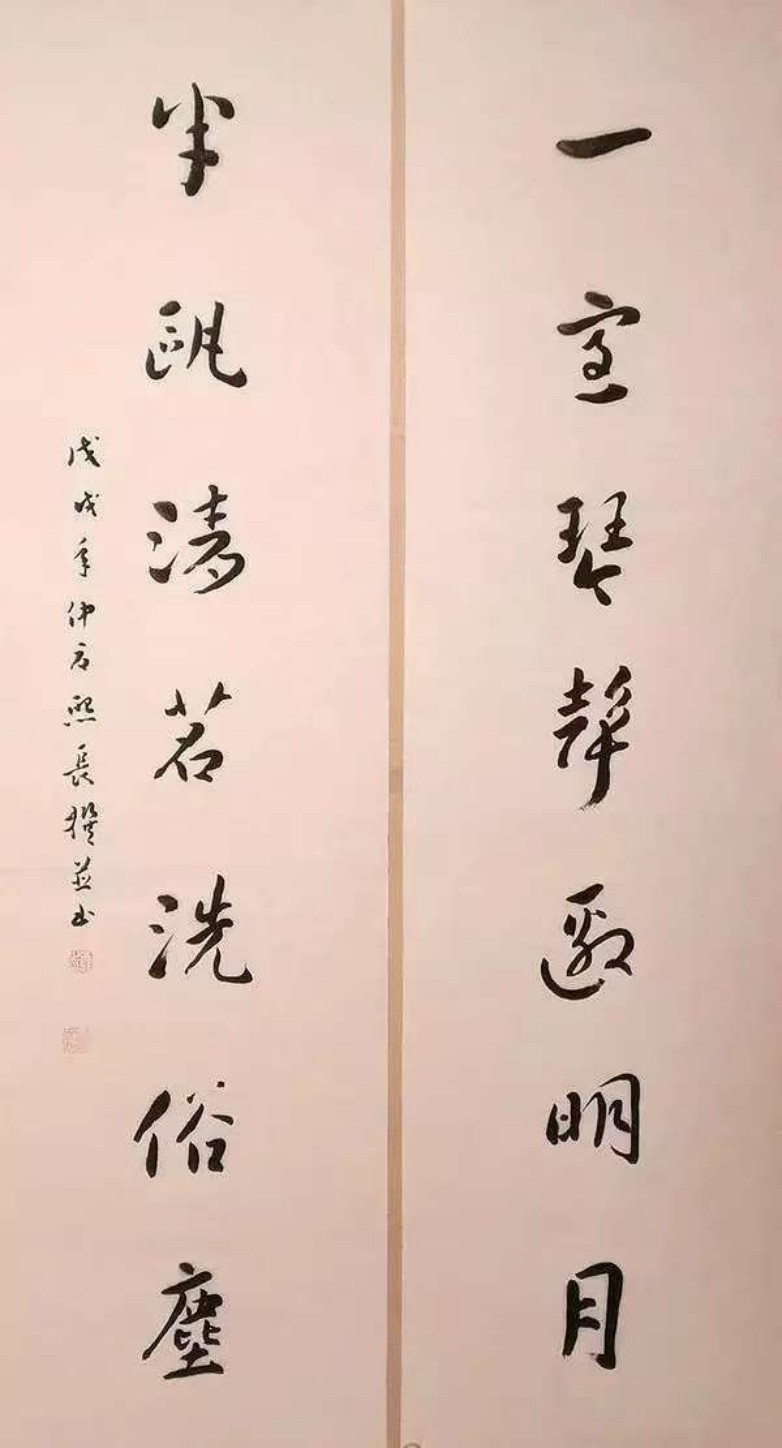 一室琴聲邀明月
半甌清茗洗俗塵
戊戌年仲夏熙長撰並書